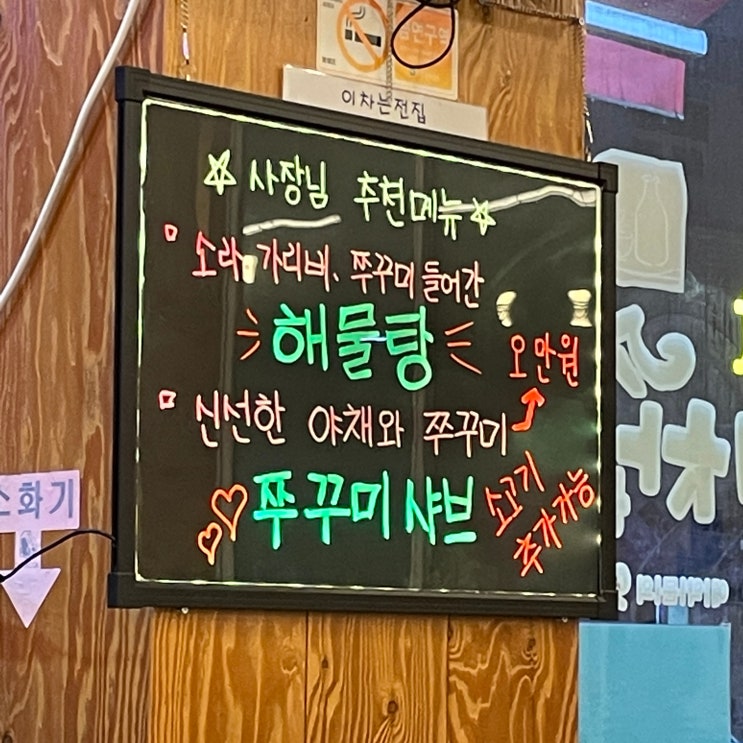 이차는전집
☆ 사장님 추천메뉴 ☆
소라, 가리비, 쭈꾸미 들어간
해물탕
오만원
신선한 야채와 쭈꾸미
쭈꾸미 샤브
소고기
추가가능
소화기